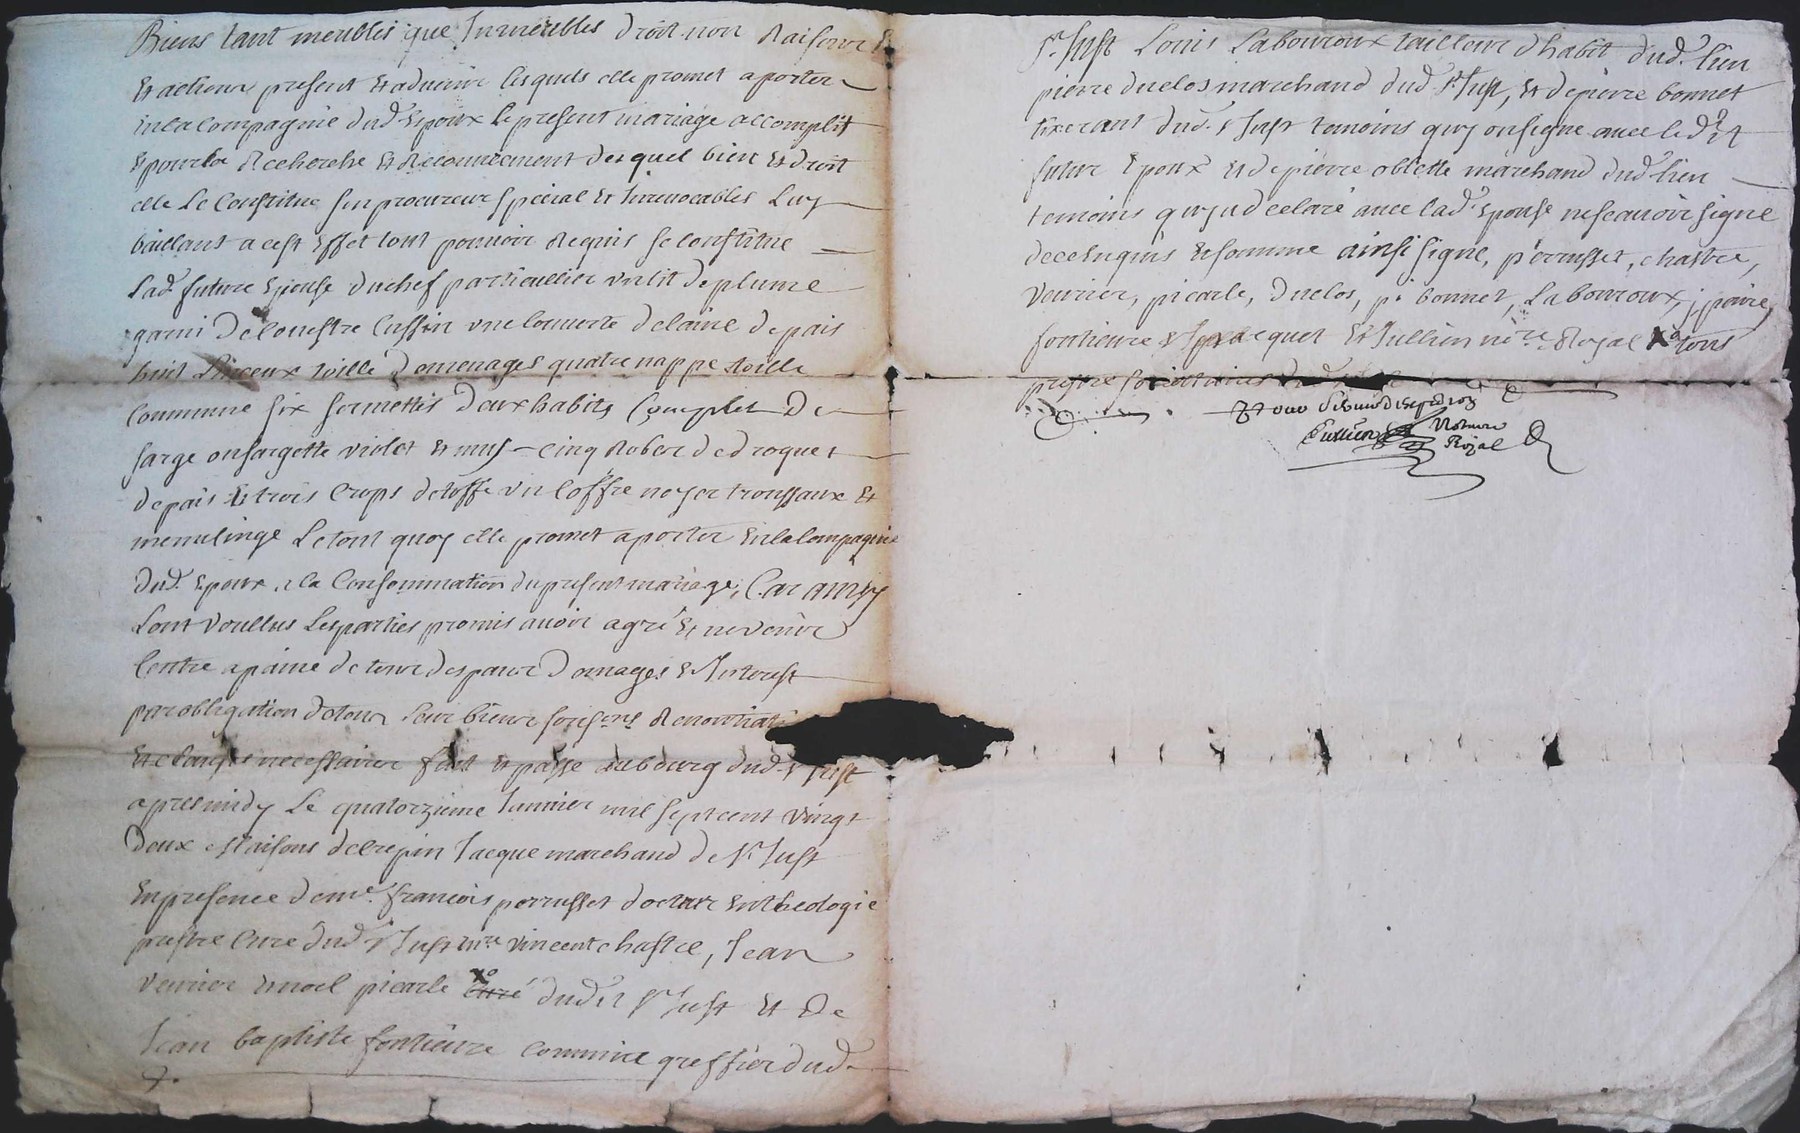 Biens tant meubles que Inmeubles droit non Raisons &
Et actions present Et advenir lesquels elle promet aporter
en la compagnie dud. Epoux le present mariage accomplit
Epour la Recherche Et Recouvrement desquel bien Et droit
elle Le Constitue son procureur special Et Irrevocables Luy
baillant a cest Effet tout pouvoir Requis se constitue
Lad. future Epouse du chef particullier un lit de plume
garni de coustre Cussin une couverte de laine de pais
huit Linceux toille domenages quatre nappe toille
Commune six serviettes deux habits complet de
sarge ou sargette violet Et mus cinq Robes de droguet
depais Et trois Corps detoffe un Coffre noyer troussaux Et
menulinge Le tout quoy elle promet aporter En la compagnie
dud. Epoux a la Consommation du present mariage, Car ainsy
Lont voullus Les parties promis avoir agré Et ne venir
Contre a paine de tous despans Domages & Interest
par obligation de tous leur biens
Et clauses necessaires fait Et passé au bourg dud. St Just
apres midy Le quatorzieme Janvier mil sept cent vingt
deux Maisons de Crepin Jacque marchand de St Just
En presence de mre. françois perrusset docteur En theologie
prestre Curé dud. St Just mre vincent chastre, Jean
verrier Et noel picarle Xo curé dudit St Just Et De
Jean baptiste fontieure commine greffier dud.
St. Just Louis Labouroux tailleur dhabit dud. lieu
pierre duclos marchand dud. St Just, Et de pierre bonnet
tixerant dud. St Just temoins quy onsigné avec led.
futur Epoux Et de pierre oblette marchand dud. lieu
temoins quy a declaré avec lad. Epouse ne scavoir signe
de ce Enquis Et somme ainsi signé, perrusset, chastre,
verrier, picarle, duclos, p. bonnet, Labouroux, j poire,
fontieure Jacquet Et Jullien nore. Royal Xo tous
prestre
Jullien Notaire
Royal